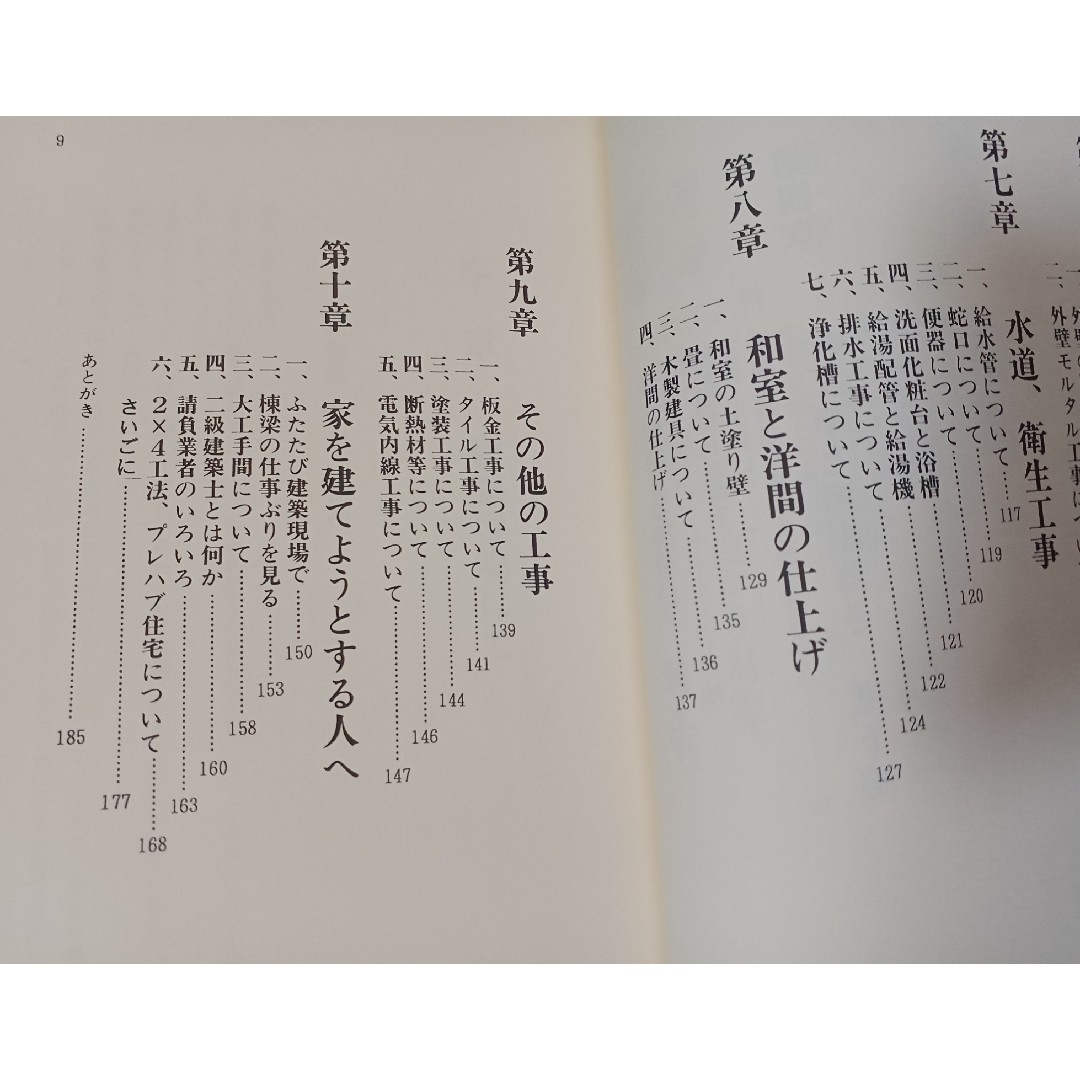 二、外壁モルタル工事に
第七章 水道、衛生工事
一、給水管について……117
二、蛇口について……119
三、便器について……120
四、洗面化粧台と浴槽……121
五、給湯配管と給湯機……122
六、排水工事について……124
七、浄化槽について……127
第八章 和室と洋間の仕上げ
一、和室の土塗り壁……129
二、畳について……135
三、木製建具について……136
四、洋間の仕上げ……137
第九章 その他の工事
一、板金工事について……139
二、タイル工事について……141
三、塗装工事について……144
四、断熱材等について……146
五、電気内線工事について……147
第十章 家を建てようとする人へ
一、ふたたび建築現場で……150
二、棟梁の仕事ぶりを見る……153
三、大工手間について……158
四、二級建築士とは何か……160
五、請負業者のいろいろ……163
六、2×4工法、プレハブ住宅について……168
さいごに……177
あとがき……185
9